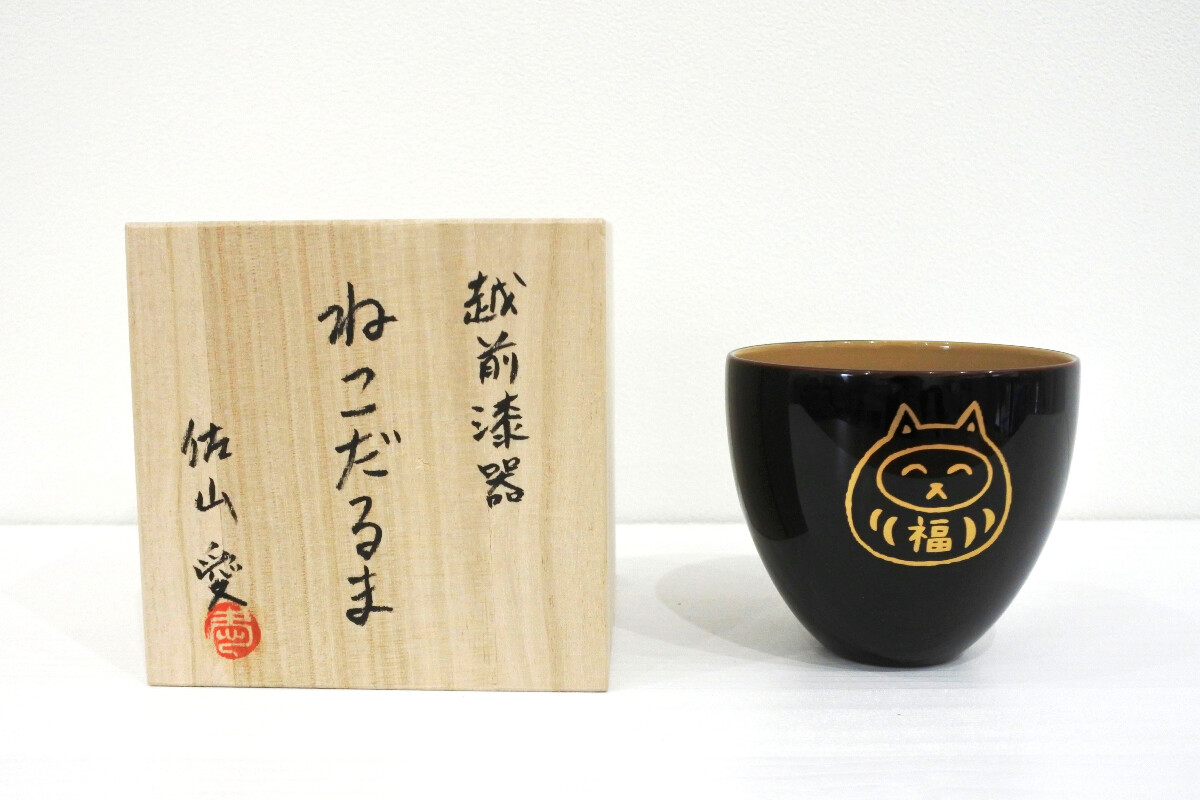 越前漆器
ねこだるま
佐山愛
福